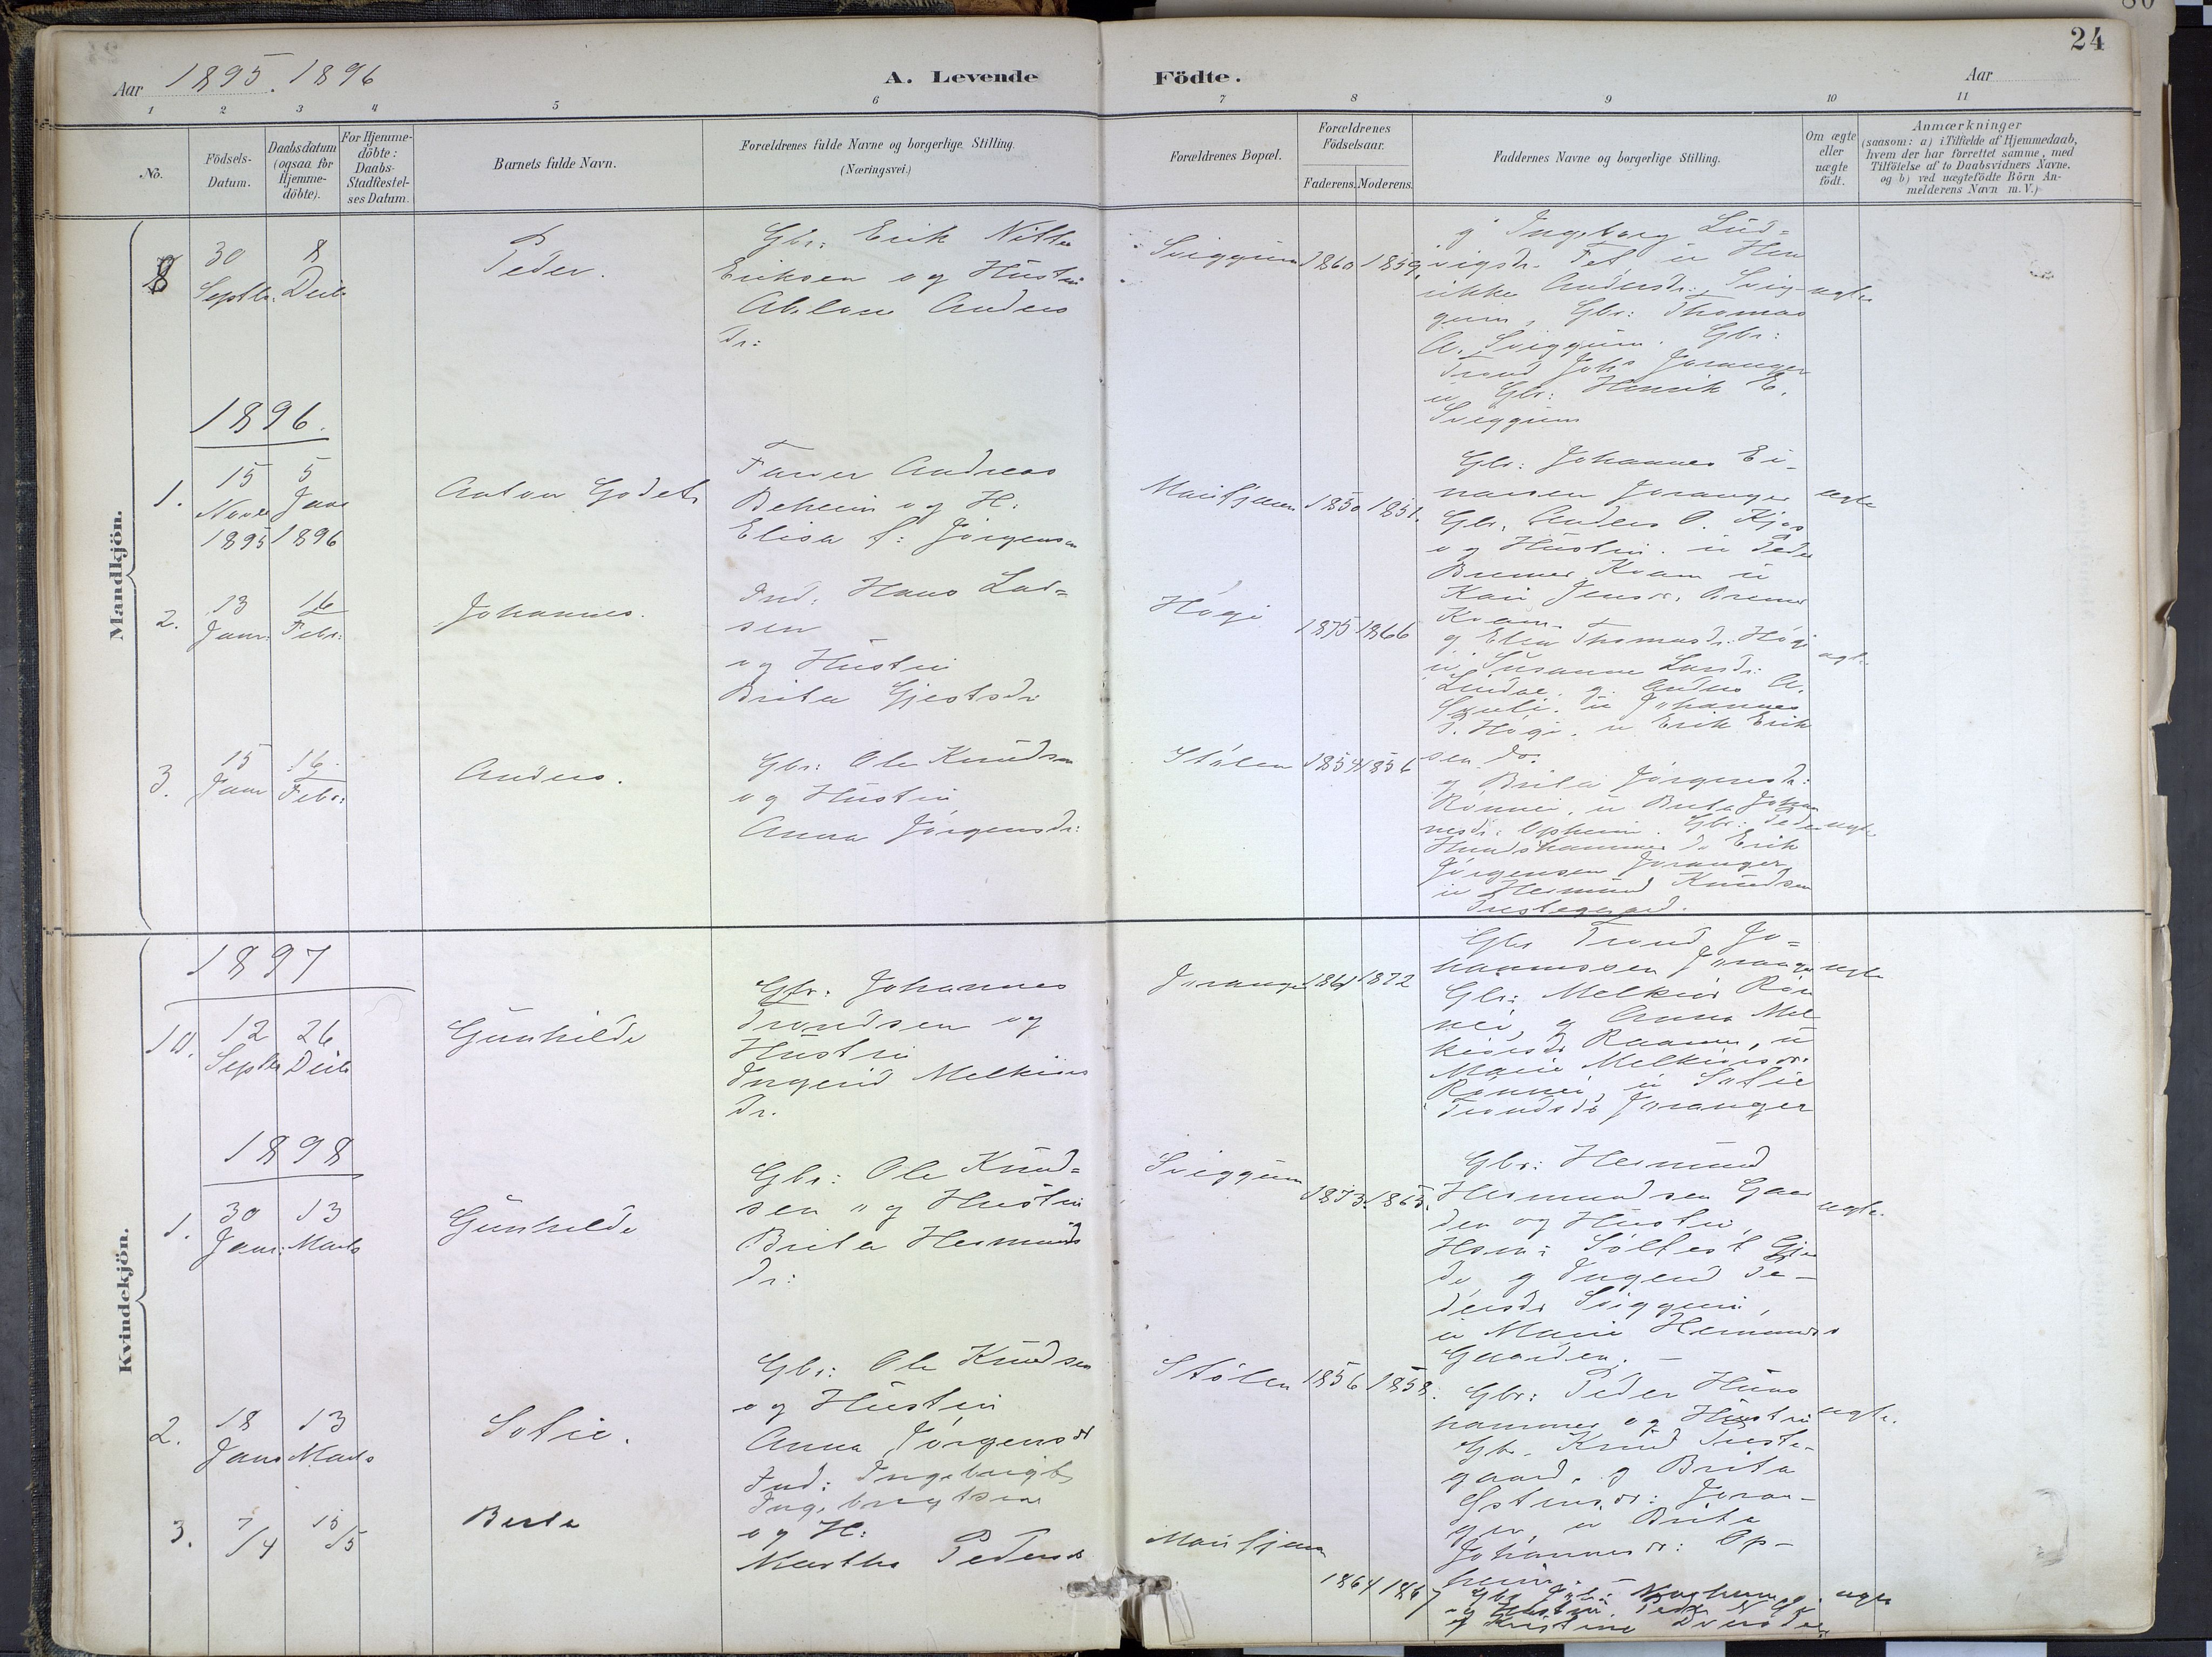 24
Aar 1895. 1896
A. Levende Födte.
Aar
1 2 3 4 5 6 7 8 9 10 11
No.
Födsels-
Datum.
Daabsdatum
(ogsaa for
Hjemme-
döbte).
For Hjemme-
döbte:
Daabs-
Stadfæstel-
ses Datum.
Barnets fulde Navn.
Forældrenes fulde Navne og borgerlige Stilling.
(Næringsvei.)
Forældrenes Bopæl.
Forældrenes
Födselsaar.
Faderens. Moderens.
Faddernes Navne og borgerlige Stilling.
Om ægte
eller
uægte
födt.
Anmærkninger
(saasom: a) i Tilfælde af Hjemmedaab,
hvem der har forrettet samme, med
Tilföielse af to Daabsvidners Navne.
og b) ved uægtefödte Börn An-
melderens Navn m. V.)
Mandkjön.
8
30
Septbr.
8
Decb.
Peder.
Gbr: Erik
Eriksen og Hustru
Abelone Anders
dr:
Sviggum
1860 1859.
g Ingeborg Lud=
vigsdr. Fet, u Hen
rikke Andersdr., Svig
gum, Gbr: Thomas
A. Sviggum. Gbr:
Trond Johs Joranger
u Gbr: Henrik E.
Sviggum
ægte
1896.
1.
15
Novbr
1895
5
Janr
1896
Anton Godets
Farver Andreas
Beheim og H.
Elisa f: Jörgensen
Marifjæren
1850 1851.
Gbr: Johannes Ei-
narsen Joranger
Gbr. Anders O. Kjos
og Hustru. u Peder
Bremer Kvam u
Kari Jensdr. Bremer
Kvam.
ægte
2.
13
Janr:
16
Febr:
Johannes.
Ind: Hans Lar=
sen
og Hustru
Brita Gjestsdr
Högi
1875 1866
g Elen Thomasdr. Högi
u Susanne Larsdr:
g. Anders A.
u Johannes
P. Högi. u Erik Erik
sen do.
ægte
3.
15
Janr
16.
Febr:
Anders.
Gbr: Ole Knudsen
og Hustru
Anna Jörgensdr:
Stölen
1854 1856
g Brita Jörgensdr:
Rönnei, u Brita Johan
nesdr: Opheim. Gbr: Peder
Hundshammer do Erik
Jörgensen Joranger,
u Hermund Knudsen
Prestegaard.
ægte
Kvindekjön.
1897
10.
12
Septbr
26
Decb
Gunhilde
Gbr. Johannes
Trondsen og
Hustru
Ingerid Melkiors
dr.
Joranger
1861 1872
Gbr Trond Jo=
hannessen Joranger
Gbr: Melkior Rön
nei, g Anna Mel
kiorsdr Raaum, u
Marie Melkiorsdr.
Rönnei, u Sofie
Trondsdr Joranger
ægte
1898
1.
30
Janr:
13
Marts
Gunhilde
Gbr: Ole Knud=
sen og Hustru
Brita Hermunds
dr:
Sviggum
1873. 1865.
Gbr: Hermund
Hermundsen Gaar
den og Hustru,
g Ingerid Pe-
dersdr Sviggum,
u Marie Hermunds
Gaarden. -
ægte.
2.
18
Janr
13
Marts
Sofie.
Gbr: Ole Knudsen
og Hustru
Anna Jörgensdr
Stölen
1856 1858.
Gbr: Peder Huns
hammer og Hustru
Gbr. Knud Preste-
gaard. g Brita
Joran-
ger, u Brita
Johannesdr: Op-
heim.
ægte.
3.
7/4
15/5
Berta
Ind: Ingebrigt
Ingebrigtsen
og H:
Martha Pedersdr
Marifjæren
1864 1867
og Hustru. Peder
og Kristine
ægte